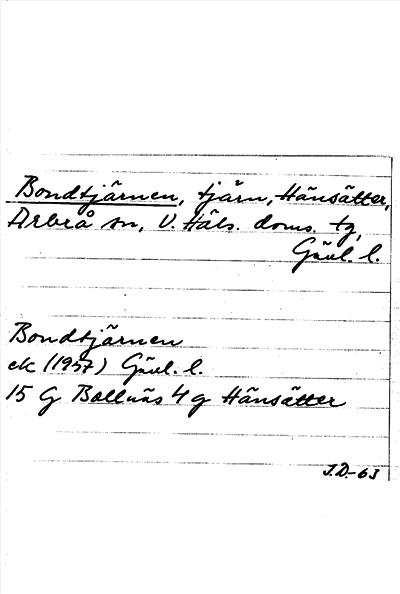 Bondtjärnen, tjärn, Hänsätter,
Arbrå sn, V. Häls. doms. tg,
Gävl. l.
Bondtjärnen
ek (1957) Gävl. l.
15 G Bollnäs 4 g Hänsätter
J.D.-63